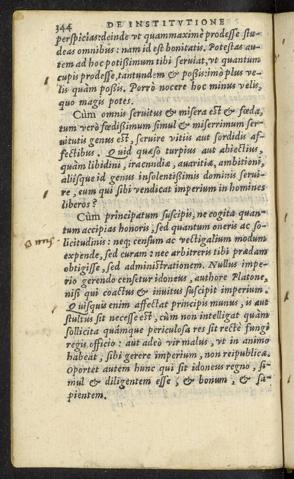 344 DE INSTITVTIONE
perspicias: deinde vt quammaximè prodesse stu-
deas omnibus: nam id est bonitatis. Potestas au-
tem ad hoc potissimum tibi seruiat, vt quantum
cupis prodesse, tantundem & possis: imò plus ve-
lis quàm possis. Porrò nocere hoc minus velis,
quo magis potes.
Cùm omnis seruitus & misera est & fœda,
tum verò fœdissimum simul & miserrimum ser-
uitutis genus est, seruire vitiis aut sordidis af-
fectibus. Quid quæso turpius aut abiectius,
quàm libidini, iracundiæ, auaritiæ, ambitioni,
aliisque id genus insolentissimis dominis serui-
re, eum qui sibi vendicat imperium in homines
liberos?
Cùm principatum suscipis, ne cogita quan-
tum accipias honoris, sed quantum oneris ac so-
licitudinis: neq; censum ac vectigalium modum
expende, sed curam: nec arbitreris tibi prædam
obtigisse, sed administrationem. Nullus impe-
rio gerendo censetur idoneus, authore Platone,
nisi qui coactus & inuitus suscipit imperium.
Quisquis enim affectat principis munus, is aut
stultus sit necesse est, cùm non intelligat quàm
sollicita quámque periculosa res sit rectè fungi
regis officio: aut adeò vir malus, vt in animo
habeat, sibi gerere imperium, non reipublicæ.
Oportet autem hunc qui sit idoneus regno, si-
mul & diligentem esse, & bonum, & sa-
pientem.